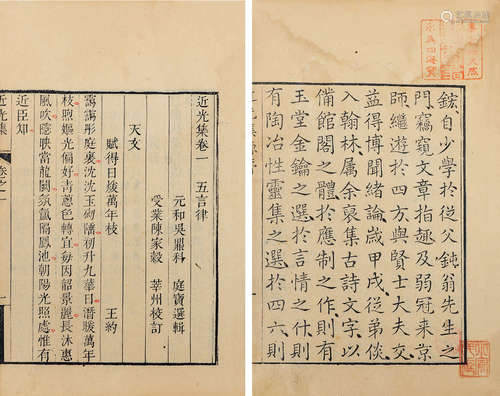 鋐自少學於從父鈍翁先生之
門竊窺文章指趣及弱冠来京
師繼遊於四方與賢士大夫交
益得博聞緒論歲甲戌從弟倓
入翰林屬余裒集古詩文字以
備館閣之體於應制之作則有
玉堂金鑰之選於言情之什則
有陶冶性靈集之選於四六則
近光集卷一 五言律
元和吳嚴科 庭寶選輯
受業陳家穀 莘州校訂
天文
賦得日煖萬年枝 王約
靄靄彤庭裏沈沈玉砌陲初升九華日潛暖萬年
枝煦嫗光偏好青蔥色轉宜每因韶景麗長沐惠
風吹隱映當龍闕氛氳隔鳳池朝陽光照處惟有
近臣知
近光集 卷之一